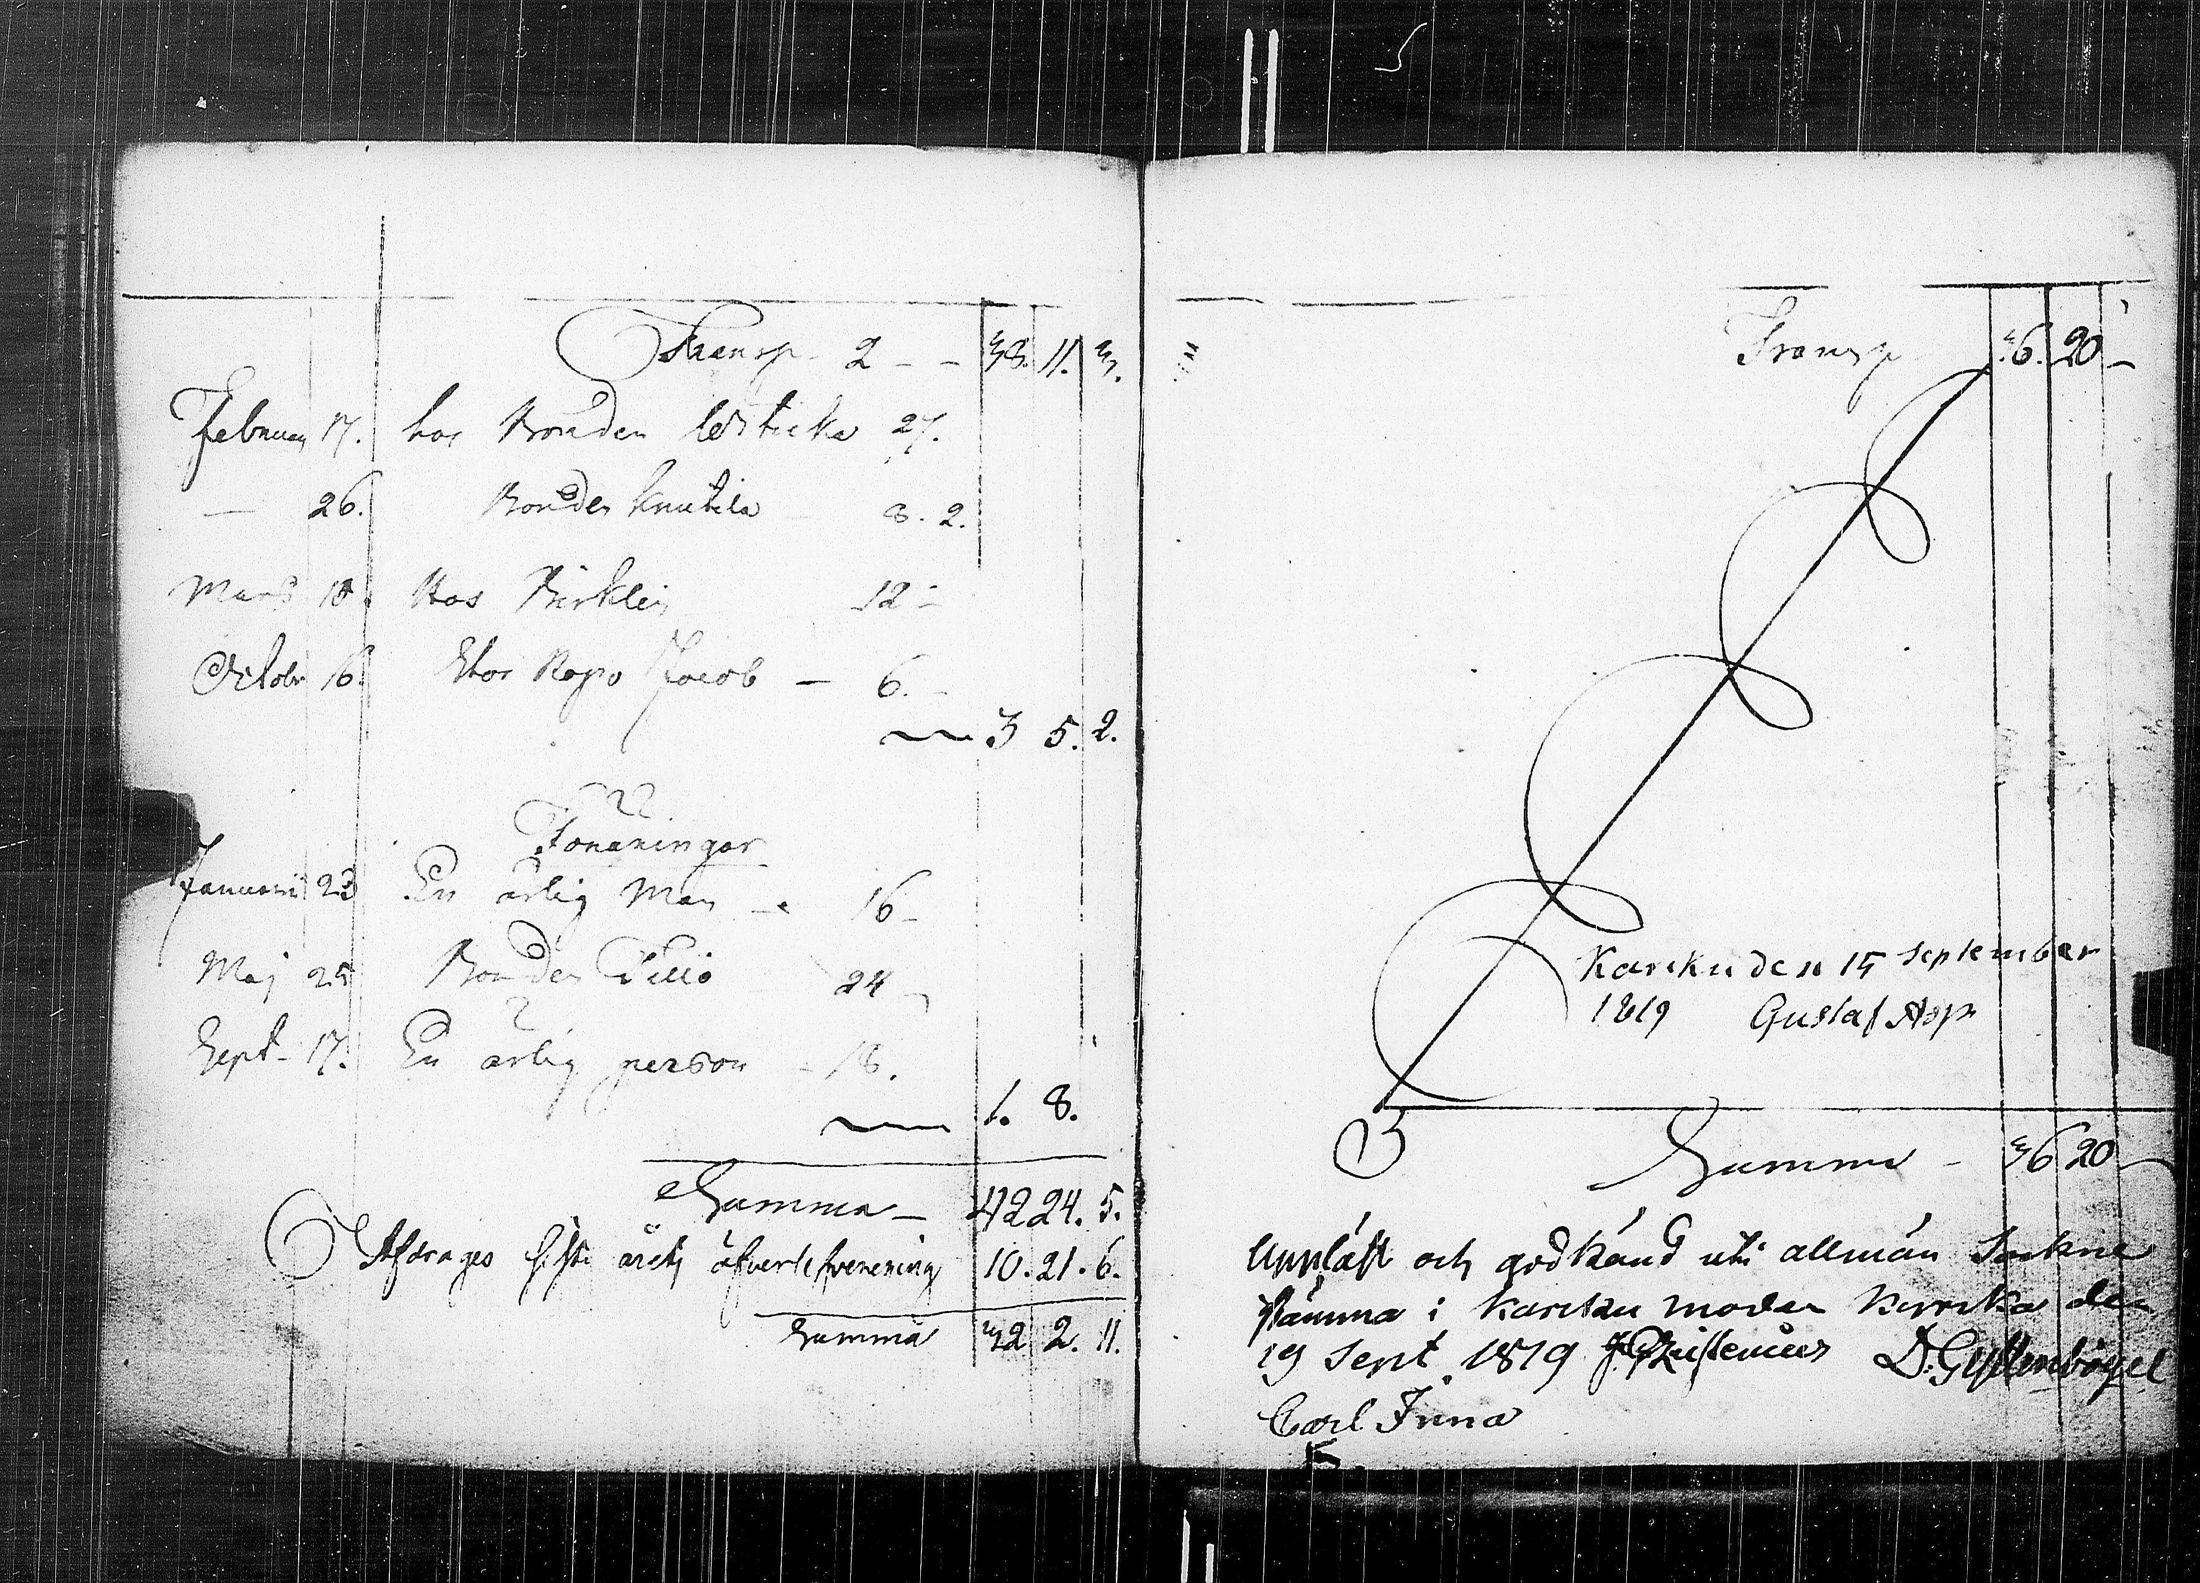 Transp. 2 - - 38. 11. 3.
Februari 17. hos Bonden 27.
— 26. Bonden Knutila - 8. 2.
Mars 18. Hos 12 -
October 16. Hos Jacob — 6. -
3 5. 2.
Foräningar
Januarii 23 En ärlig Man - 16 -
Maj 25 Bonden 24 -
Sept. 17. En ärlig person - 18.
1. 8.
Summa - 42 24. 5.
Afdrages sista årets öfverlefverering 10. 21. 6.
Summa 32 2. 11.
Transp 36. 20 -
Karcku den 15 September
1819 Gustaf Asp
Summa - 36 20 -
Uppläst och godkänd uti allmän Sockne
stämma i Karcku moder Kyrcka den
19 Sept 1819 D. Gyllenbögel
Carl Inna